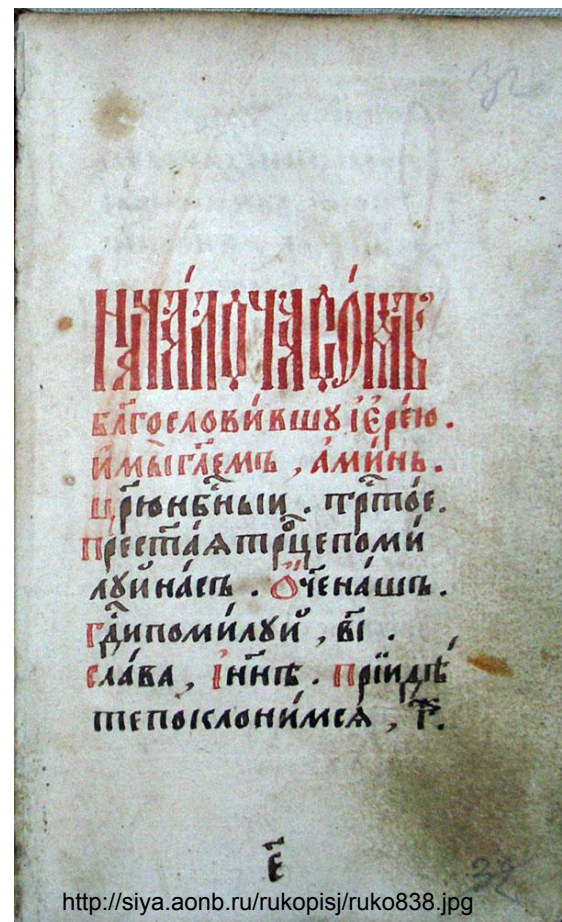 32
Нача́ло часо́мъ
бл҃гослови́вшꙋ іере́ю.
и҆ мы̀ гл҃емъ, а҆ми́нь.
цр҃ю нб҃ныи. трⷭ҇то́е.
прест҃а́ѧ трⷪ҇це поми́
лꙋй на́съ. Ѻ҆́ч҃е на́шъ.
гдⷭ҇и поми́лꙋй, в҃і.
сла́ва, і҆ нн҃ѣ. прїидѣ́
те поклони́мсѧ, г҃.
є҃
32
http://siya.aonb.ru/rukopisj/ruko838.jpg